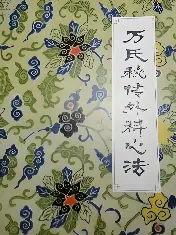 万氏秘传外科心法